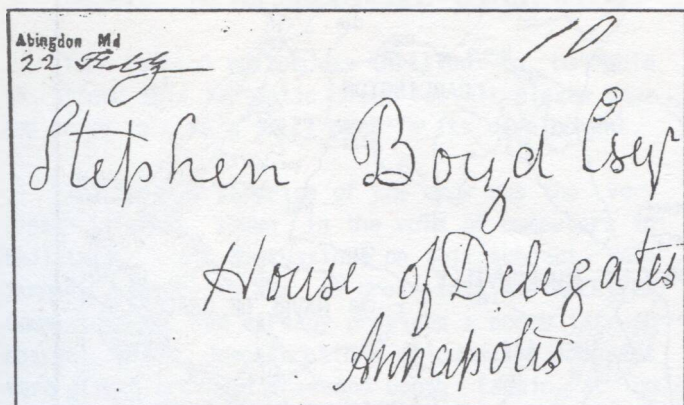 Abingdon Md
22 Feby 10
Stephen Boyd Esqr
House of Delegates
Annapolis